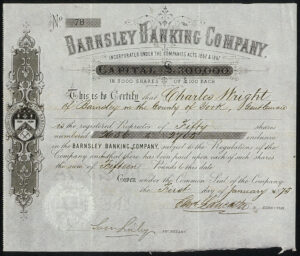 No 78
BARNSLEY BANKING COMPANY,
INCORPORATED UNDER THE COMPANIES ACTS 1862 & 1867
CAPITAL £300,000
IN 3000 SHARES OF £100 EACH
This is to Certify that Charles Wright
of Barnsley in the County of York,
is the registered Proprietor of Fifty shares
numbered inclusive
in the BARNSLEY BANKING COMPANY, subject to the Regulations of the
Company and that there has been paid upon each of such shares
the sum of Fifteen Pounds to this date
GIVEN under the Common Seal of the Company
the First day of January 1878
DIRECTOR